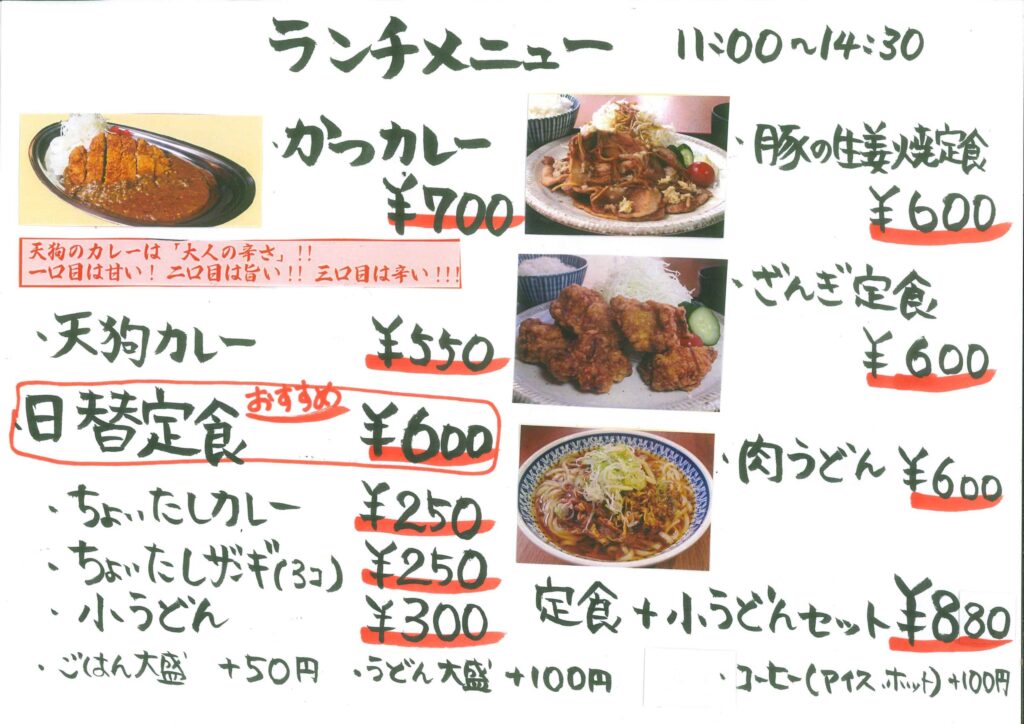 ランチメニュー 11:00〜14:30
・かつカレー
¥700
天狗のカレーは「大人の辛さ」!!
一口目は甘い! 二口目は旨い!! 三口目は辛い!!!
・天狗カレー ¥550
・日替定食 おすすめ ¥600
・ちょいたしカレー ¥250
・ちょいたしザンギ(3コ) ¥250
・小うどん ¥300
・豚の生姜焼定食
¥600
・ざんぎ定食
¥600
・肉うどん ¥600
定食+小うどんセット ¥880
・ごはん大盛 +50円 ・うどん大盛 +100円 ・コーヒー(アイス、ホット)+100円